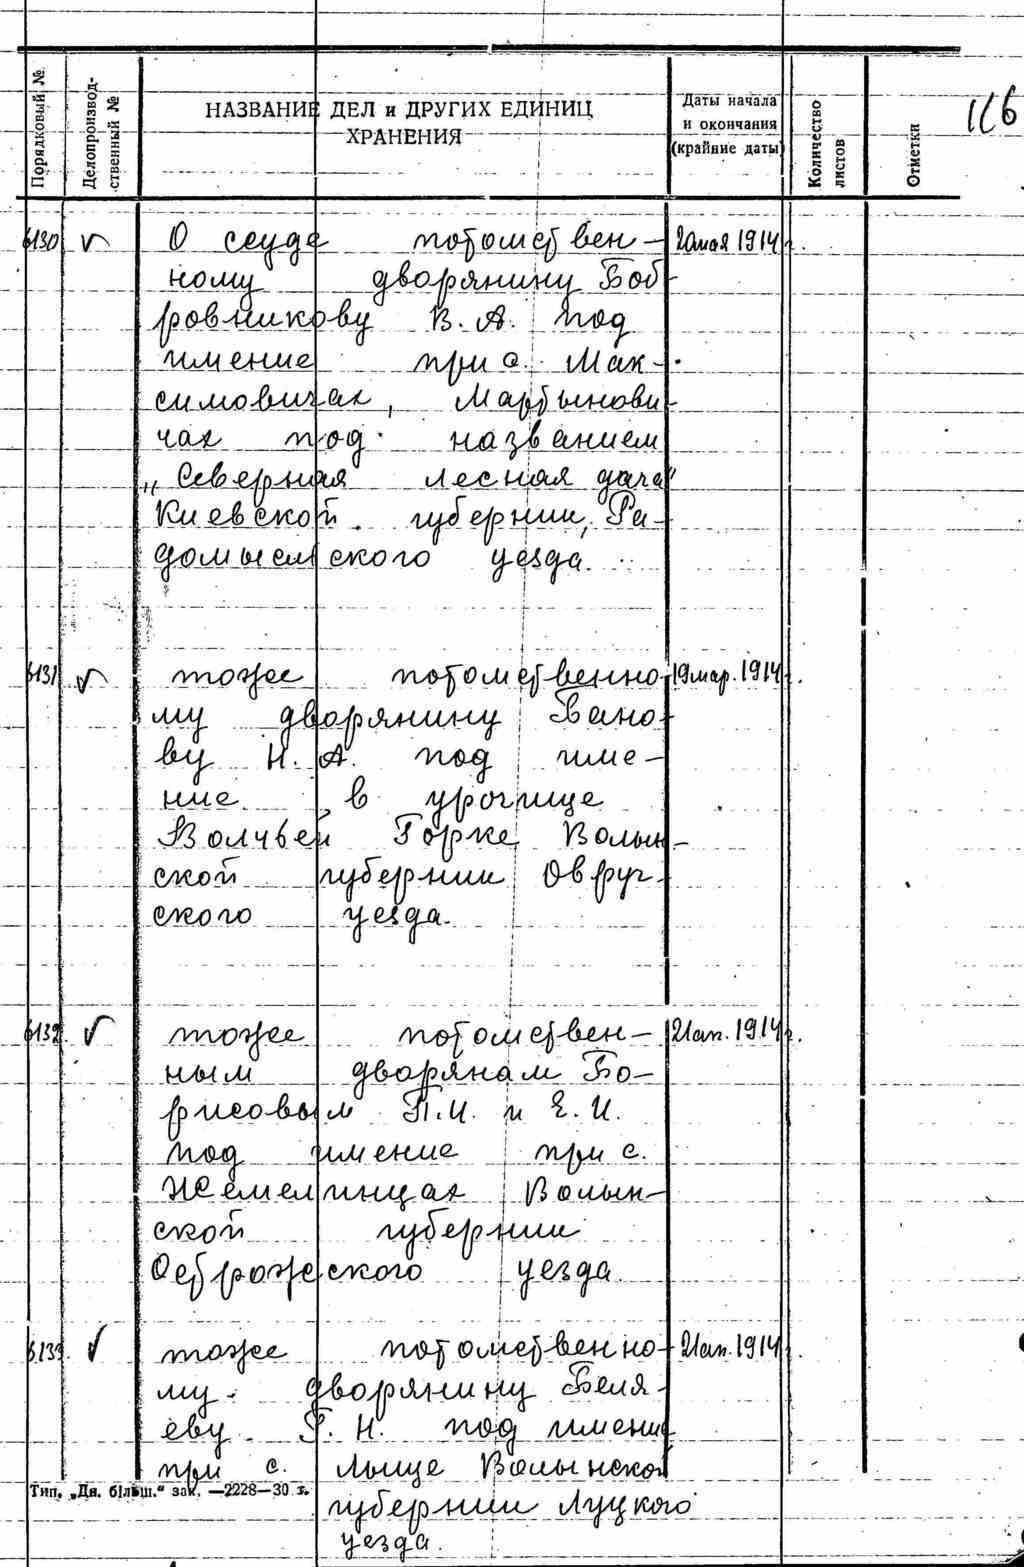 116
Порядковый №
Делопроизвод-
ственный №
НАЗВАНИЕ ДЕЛ и ДРУГИХ ЕДИНИЦ
ХРАНЕНИЯ
Даты начала
и окончания
(крайние даты)
Количество
листов
Отметки
6130 О ссуде потомствен- 20 мая 1914 г.
ному дворянину Боб
ровникову В. А. под
имение при с. Мак-
симовичах, Мартынови-
чах под названием
„Северная лесная дача"
Киевской губернии, Ра-
домысльского уезда.
6131 тоже потомственно- 19 мар. 1914 г.
му дворянину
ву Н. А. под име-
ние в урочище
Волчьей Горке Волын-
ской губернии Овруч-
ского уезда.
6132 тоже потомствен- 21 ап. 1914 г.
ным дворянам Бо-
рисовым П. И. и Е. И.
под имение при с.
Жемелинцах Волын-
ской губернии
Острожского уезда.
6133 тоже потомственно- 21 ап. 1914 г.
му дворянину Беля-
еву Г. Н. под имение
при с. Лыще Волынской
губернии Луцкого
уезда.
Тип. „Дн. більш." зак. —2228—30 г.